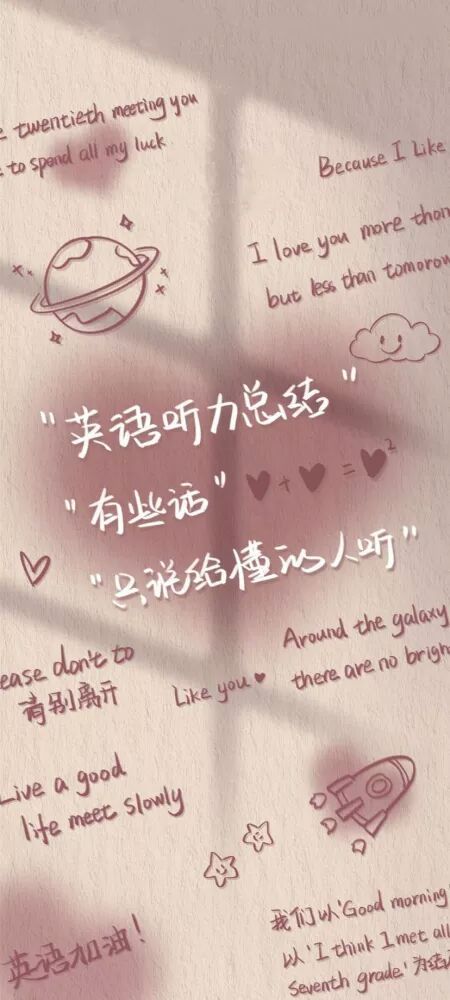 twentieth meeting you
to spend all my luck
Because I Like
I love you more than
but less than tomorrow
"英语听力总结"
"有些话"
+ = 2
"只说给懂的人听"
Around the galaxy
there are no brigh
ease don't to
请别离开
Like you
Live a good
life meet slowly
我们以'Good morning'
以'I think I met all
Seventh grade'为结
英语加油!